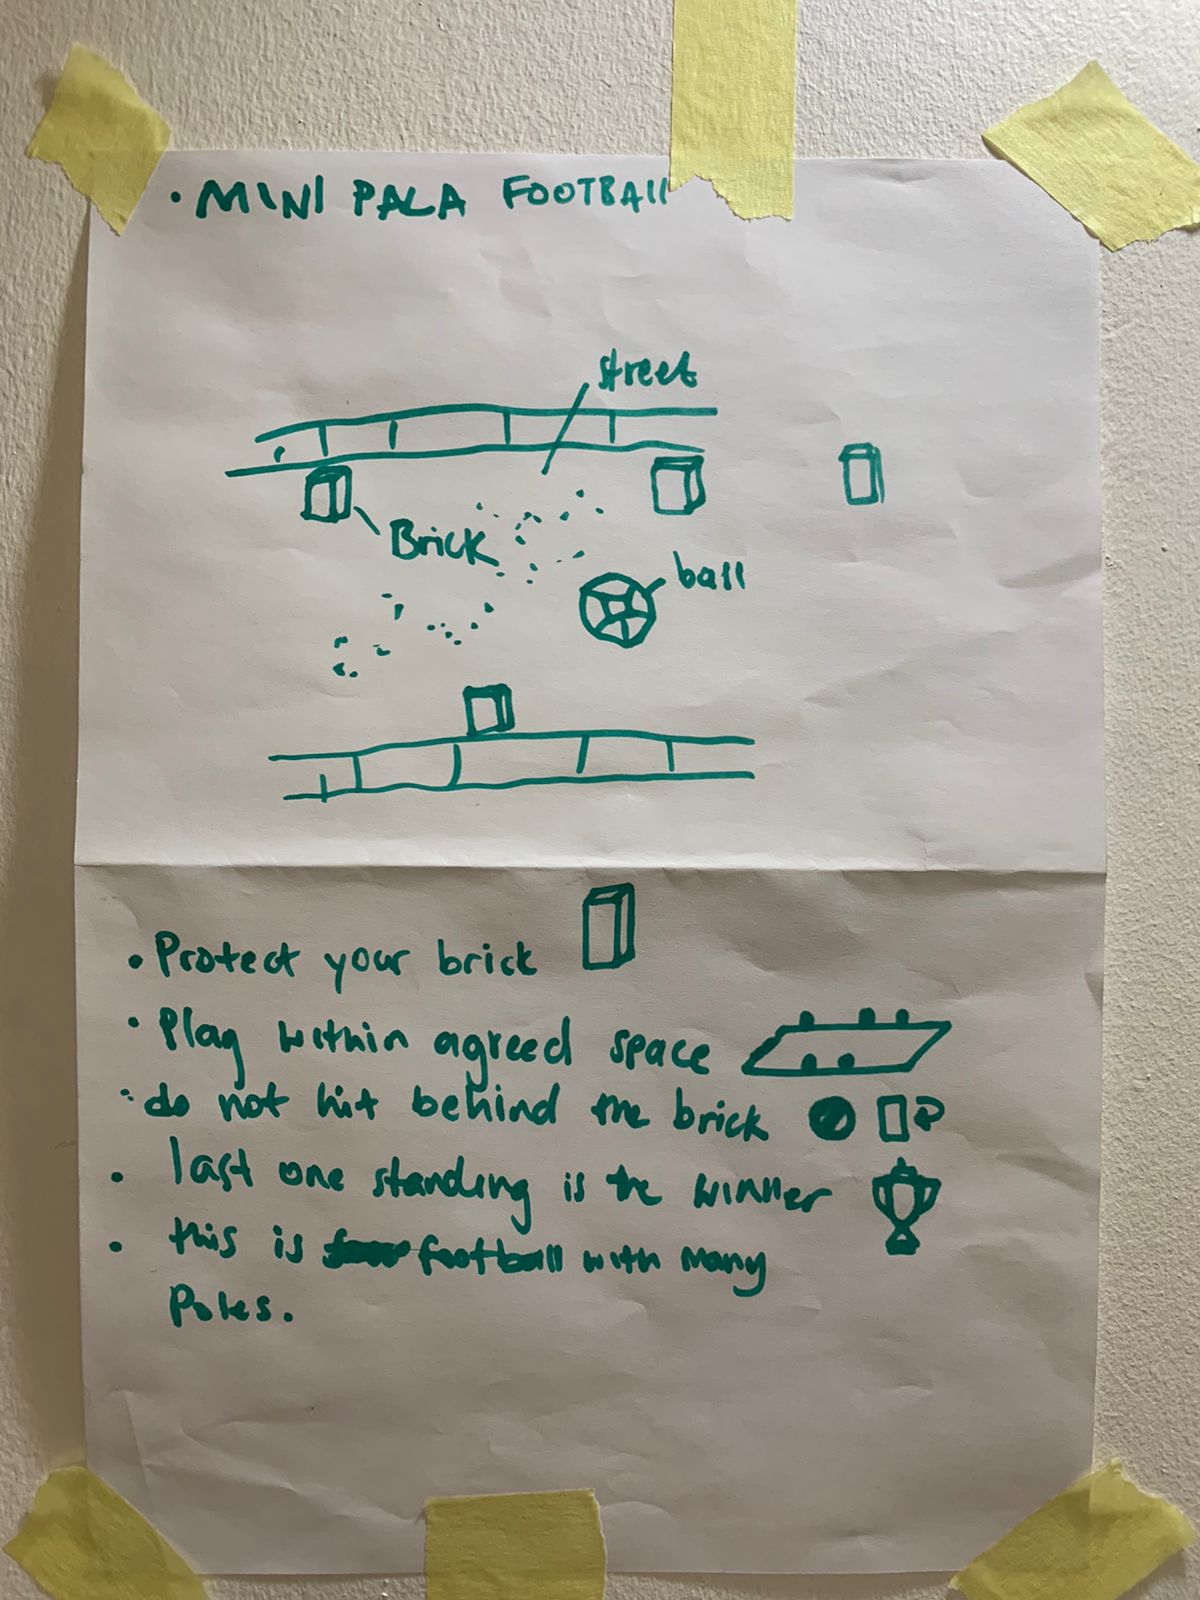 • MINI PALA FOOTBAll
street
Brick
ball
• Protect your brick
• Play within agreed space
• do not hit behind the brick
• last one standing is the winner
• this is football with many
Poles.